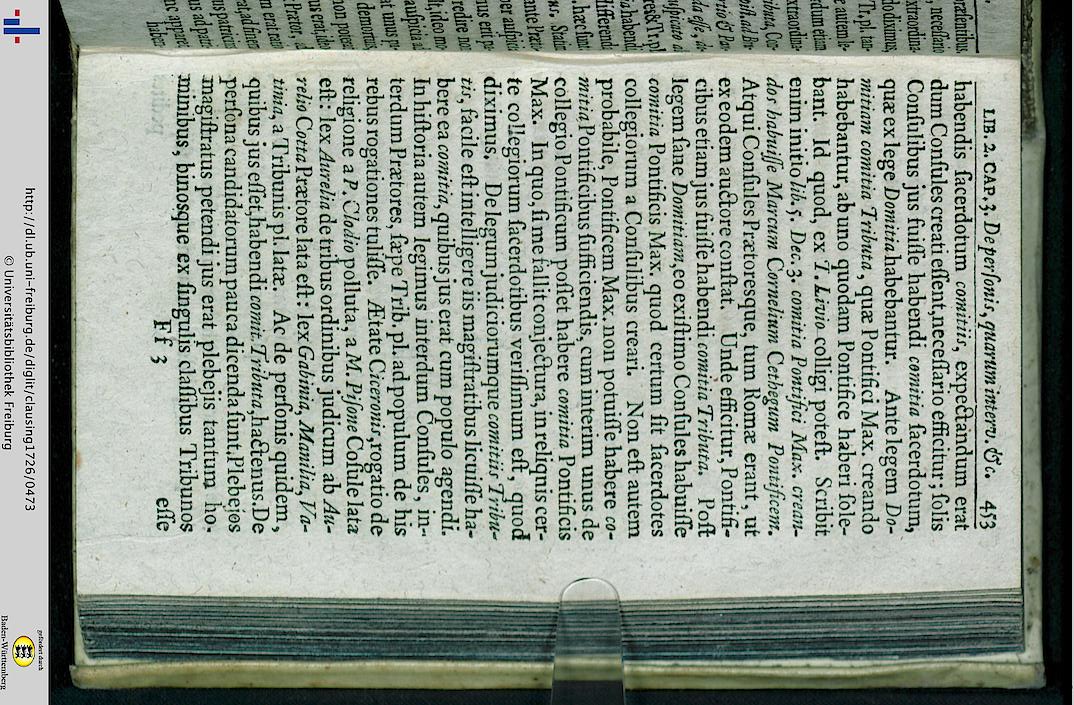 LIB. 2. CAP. 3. De perſonis, quarum interv. &c. 453
habendis ſacerdotum comitiis, expectandum erat
dum Conſules creati eſſent, neceſſario efficitur; ſolis
Conſulibus jus fuiſſe habendi comitia ſacerdotum,
quæ ex lege Domitia habebantur. Ante legem Do-
mitiam comitia Tributa, quæ Pontifici Max. creando
habebantur, ab uno quodam Pontifice haberi ſole-
bant. Id quod, ex T. Livio colligi poteſt. Scribit
enim initio lib. 5. Dec. 3. comitia Pontifici Max. crean-
dos habuiſſe Marcum Cornelium Cethegum Pontificem.
Atqui Conſules Prætoresque, tum Romæ erant, ut
ex eodem auctore conſtat. Unde efficitur, Pontifi-
cibus etiam jus fuiſſe habendi comitia Tributa. Poſt
legem ſane Domitiam, eo exiſtimo Conſules habuiſſe
comitia Pontificis Max. quod certum ſit ſacerdotes
collegiorum a Conſulibus creari. Non eſt autem
probabile, Pontificem Max. non potuiſſe habere co-
mitia Pontificibus ſufficiendis, cum interim unus de
collegio Pontificum poſſet habere comitia Pontificis
Max. In quo, ſi me fallit conjectura, in reliquis cer-
te collegiorum ſacerdotibus veriſſimum eſt, quod
diximus. De legum judiciorumque comitiis Tribu-
tis, facile eſt intelligere iis magiſtratibus licuiſſe ha-
bere ea comitia, quibus jus erat cum populo agendi.
In hiſtoria autem legimus interdum Conſules, in-
terdum Prætores, ſæpe Trib. pl. ad populum de his
rebus rogationes tuliſſe. Ætate Ciceronis, rogatio de
religione a P. Clodio polluta, a M. Piſone Coſule lata
eſt: lex Aurelia de tribus ordinibus judicum ab Au-
relio Cotta Prætore lata eſt: lex Gabinia, Manilia, Va-
tinia, a Tribunis pl. latæ. Ac de perſonis quidem,
quibus jus eſſet, habendi comit. Tributa, hactenus. De
perſona candidatorum pauca dicenda ſunt. Plebejos
magiſtratus petendi jus erat plebejis tantum ho-
minibus, binosque ex ſingulis claſſibus Tribunos
F f 3 eſſe
http://dl.ub.uni-freiburg.de/diglit/clausing1726/0473
© Universitätsbibliothek Freiburg
gefördert durch
Baden-Württemberg